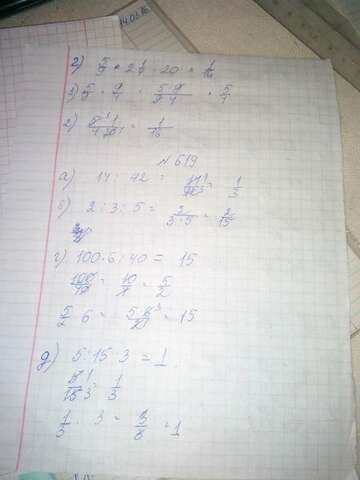 2) 5/9 · 2 1/4 : 20 = 1/16
3) 5/9 · 9/4 = 5·9/9·4 = 5/4
2) 5·1/4·20 = 1/16
№ 619
а) 14 : 42 = 14/42 = 1/3
б) 2 : 3 : 5 = 2/3·5 = 2/15
г) 100·6 : 40 = 15
100/40 = 10/4 = 5/2
5/2 · 6 = 5·6/2 = 15
д) 5 : 15 · 3 = 1
5/15 = 1/3
1/3 · 3 = 3/3 = 1